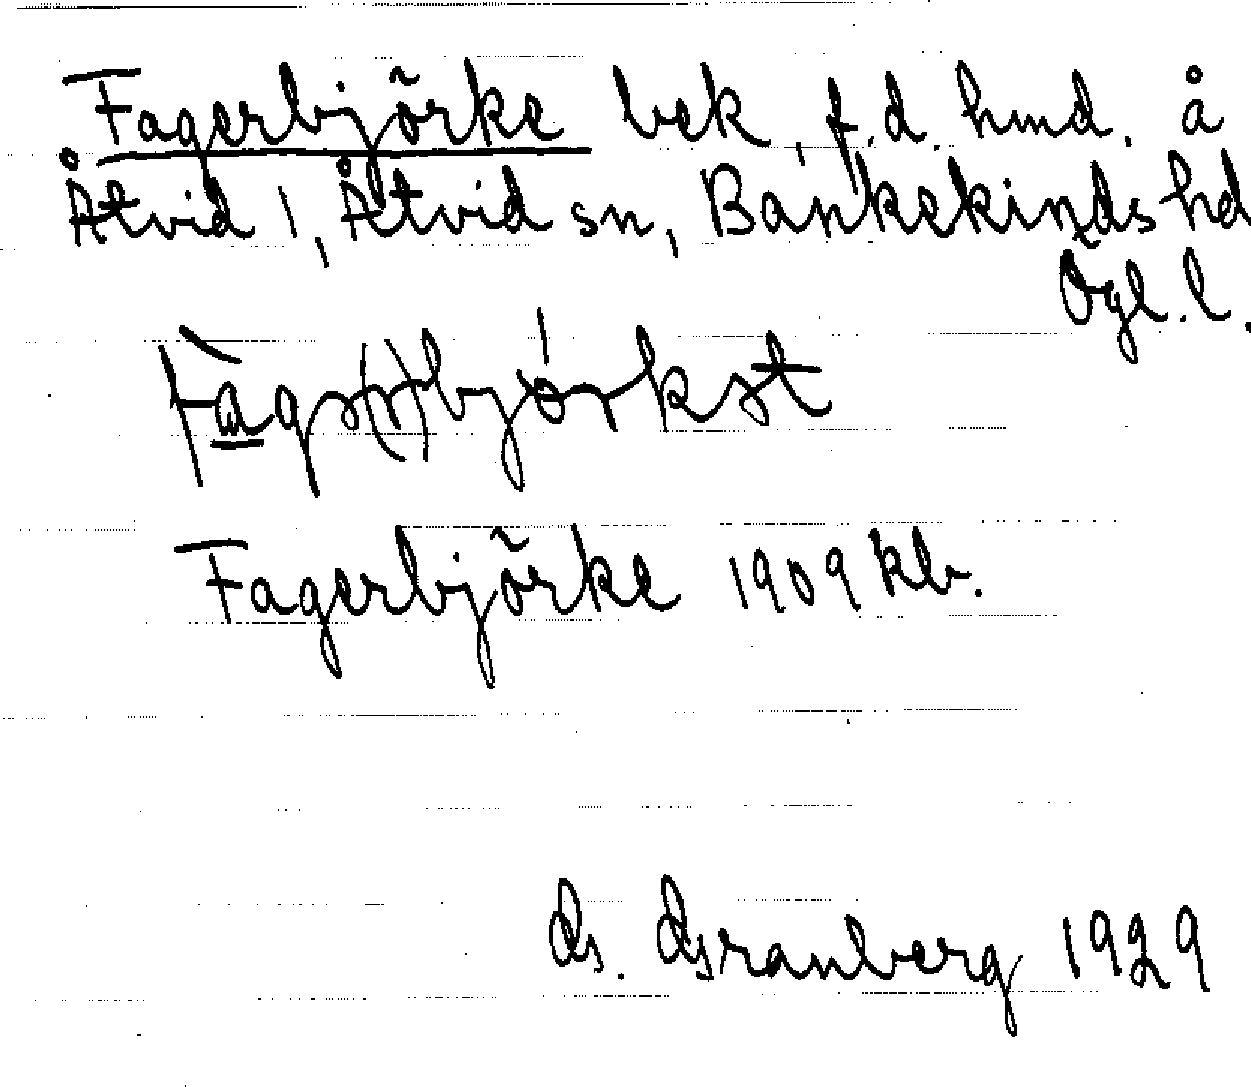 Fagerbjörke bek, f.d. hmd. å
Åtvid 1, Åtvid sn, Bankekinds hd
Ögl. l.
Fagerbjörke 1909 kb.
G. Granberg 1929